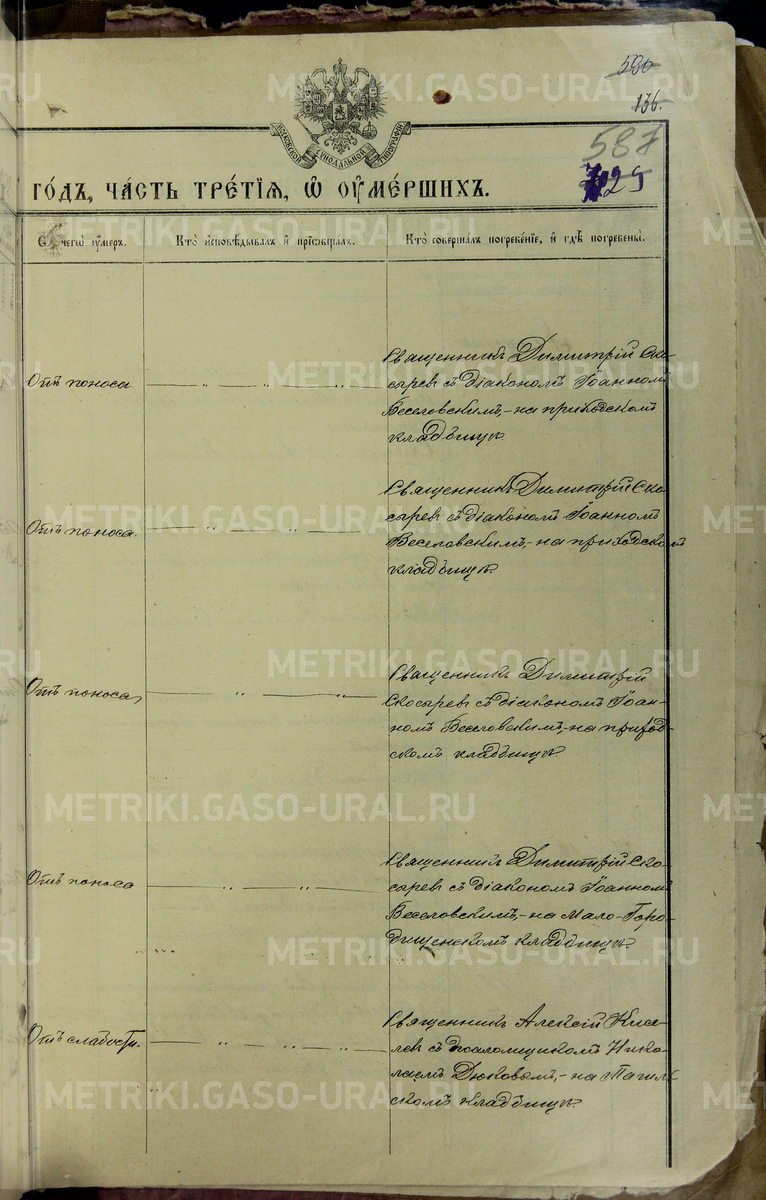 580
136.
МОСКОВСКОЙ СѴНОДАЛЬНОЙ ТИПОГРАФІИ
587
729
ГО́ДЪ, ЧА́СТЬ ТРЕ́ТЇѦ, Ѽ ОУ҆МЕ́РШИХЪ.
Ѿ чегѡ̀ оу҆́меръ.
Кто̀ и҆сповѣ́дывалъ и҆ прїѡбща́лъ.
Кто̀ соверша́лъ погребе́нїе, и҆ гдѣ̀ погребены̀.
Отъ поноса
Священникъ Димитрій Ско-
сыревъ съ діакономъ Іоанномъ
Веселовскимъ,-на приходскомъ
кладбищѣ
Отъ поноса.
Священникъ Димитрій Ско-
сыревъ съ діакономъ Іоанномъ
Веселовскимъ,-на приходскомъ
кладбищѣ.
Отъ поноса,
Священникъ Димитрій
Скосыревъ съ діакономъ Іоан-
номъ Веселовскимъ,-на приход-
скомъ кладбищѣ.
Отъ поноса
Священникъ Димитрій Ско-
сыревъ съ діакономъ Іоанномъ
Веселовскимъ,-на Мало-Горо-
дищенскомъ кладбищѣ.
Отъ слабости.
Священникъ Алексій Кисе-
левъ съ псаломщикомъ Нико-
лаемъ Дюковымъ,-на Тагиль-
скомъ кладбищѣ.
METRIKI.GASO-URAL.RU